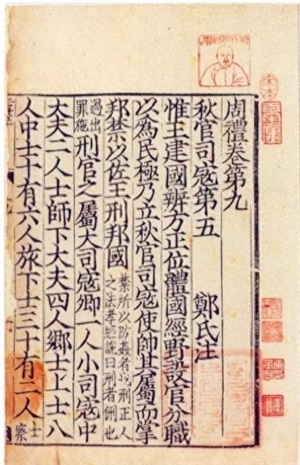 周禮卷第九
秋官司寇第五 鄭氏注
惟王建國辨方正位體國經野設官分職
以為民極乃立秋官司寇使帥其屬而掌
邦禁以佐王刑邦國 禁所以防姦者也刑正人之法孝經說曰刑者侀也
過出罪施 刑官之屬大司寇卿一人小司寇中
大夫二人士師下大夫四人鄉士上士八
人中士十有六人旅下士三十有二人 士察